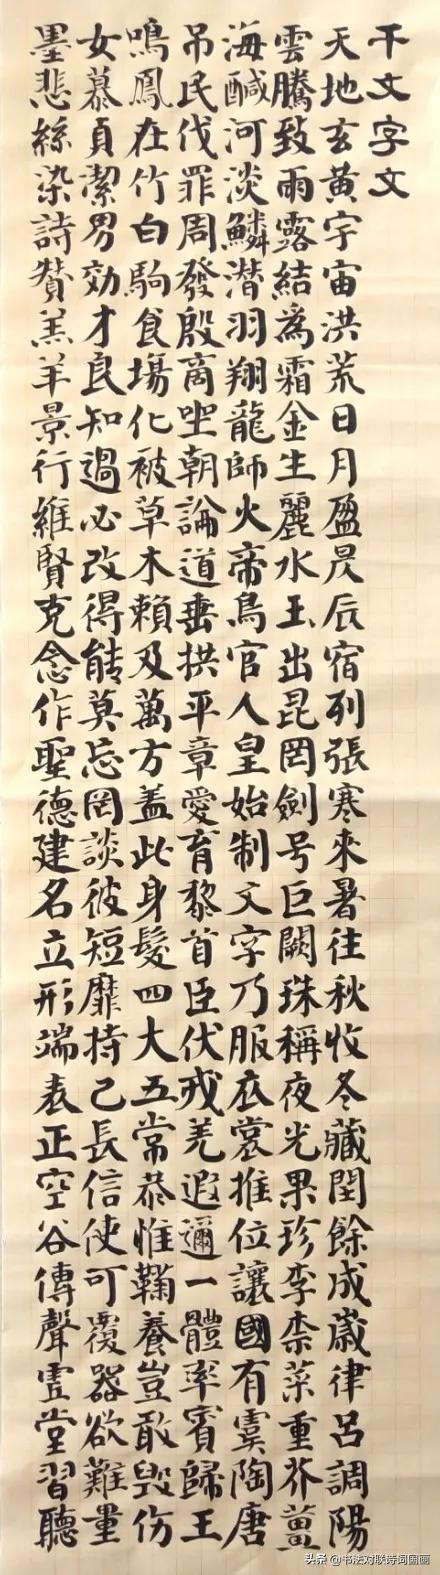 千文字文
天地玄黄宇宙洪荒日月盈昃辰宿列張寒來暑往秋收冬藏閏餘成歲律呂調陽
雲騰致雨露結為霜金生麗水玉出昆岡劍号巨闕珠稱夜光果珍李柰菜重芥薑
海鹹河淡鱗潛羽翔龍師火帝鳥官人皇始制文字乃服衣裳推位讓國有虞陶唐
吊民伐罪周發殷商坐朝論道垂拱平章愛育黎首臣伏戎羌遐邇一體率賓歸王
鳴鳳在竹白駒食場化被草木賴及萬方蓋此身髮四大五常恭惟鞠養豈敢毀伤
女慕貞潔男効才良知過必改得能莫忘罔談彼短靡持己長信使可覆器欲難量
墨悲絲染詩贊羔羊景行維賢克念作聖德建名立形端表正空谷傳聲虛堂習聽
头条 @书法对联诗词国画